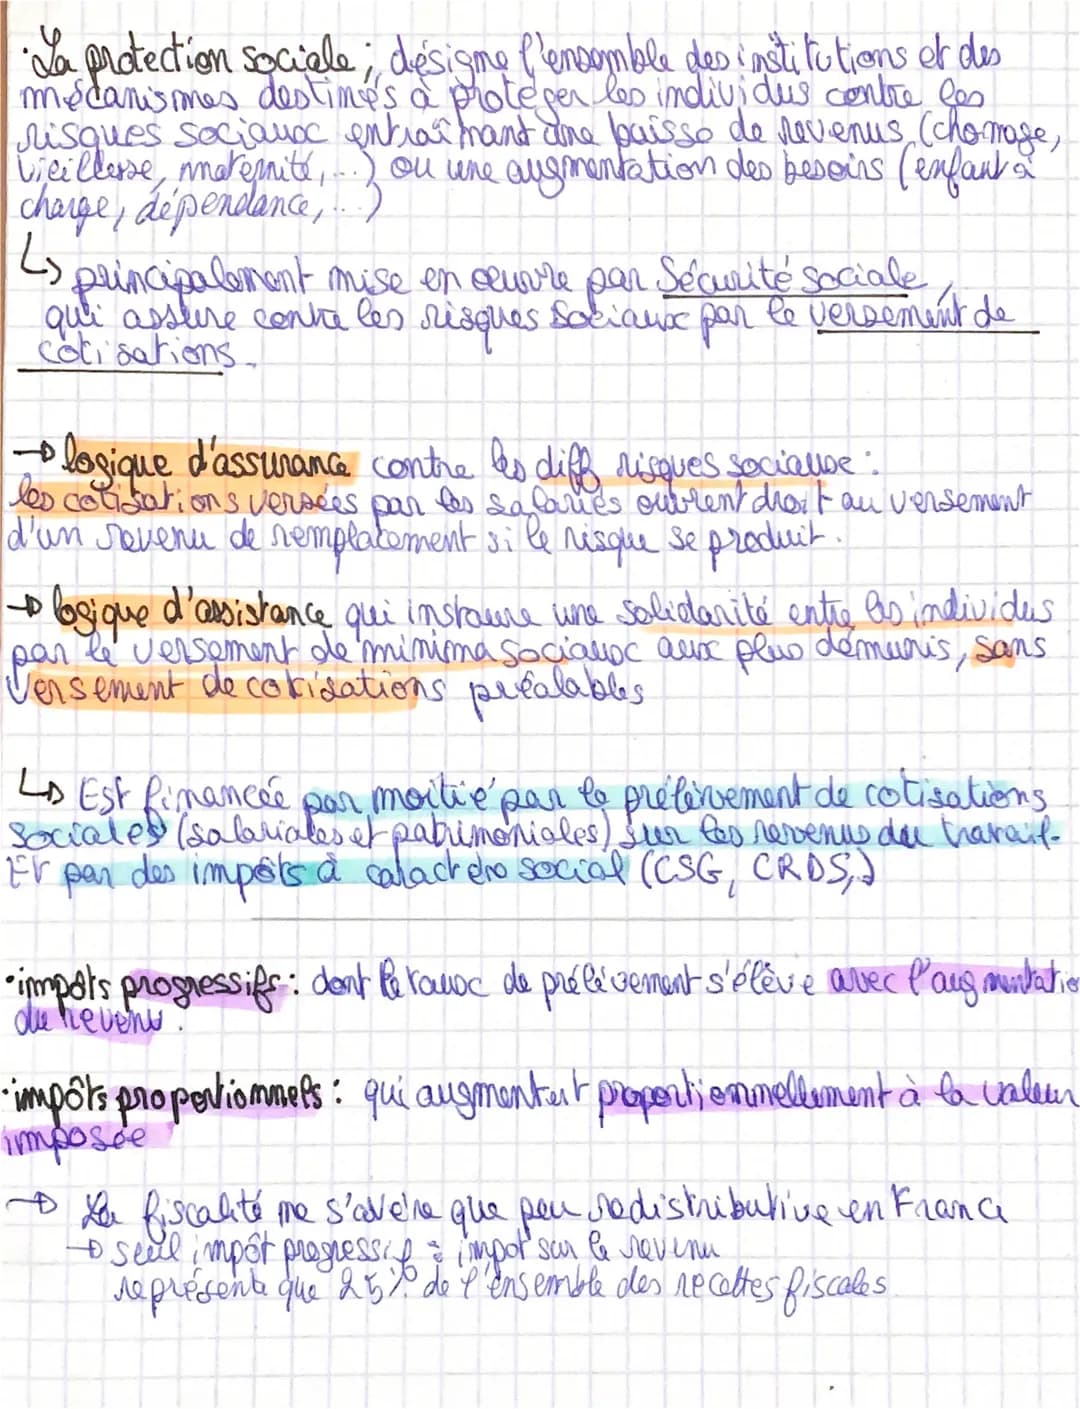 · La protection sociale ; désigne l'ensemble des institutions et des
mécanismes destinés à protéger les individus contre les
risques sociaux entraînant une baisse de revenus (chomage,
vieillesse, maternité, ...) ou une augmentation des besoins (enfant à
charge, dépendance, ...)
↳ principalement mise en œuvre par Sécurité sociale,
qui assure contre les risques sociaux par le versement de
cotisations.
→ logique d'assurance contre les diff risques sociaux :
les cotisations versées par les salariés ouvrent droit au versement
d'un revenu de remplacement si le risque se produit.
→ logique d'assistance qui instaure une solidarité entre les individus
par le versement de minima sociaux aux plus démunis, sans
versement de cotisations préalables
↳ Est financée par moitié par le prélèvement de cotisations
sociales (salariales et patrimoniales) sur les revenus du travail.
Et par des impôts à caractère social (CSG, CRDS,)
· impôts progressifs : dont le taux de prélèvement s'élève avec l'augmentatio
du revenu.
· impôts proportionnels : qui augmentent proportionnellement à la valeur
imposée
→ La fiscalité ne s'avère que peu redistributive en France
→ seul impôt progressif = impot sur le revenu
représente que 25% de l'ensemble des recettes fiscales